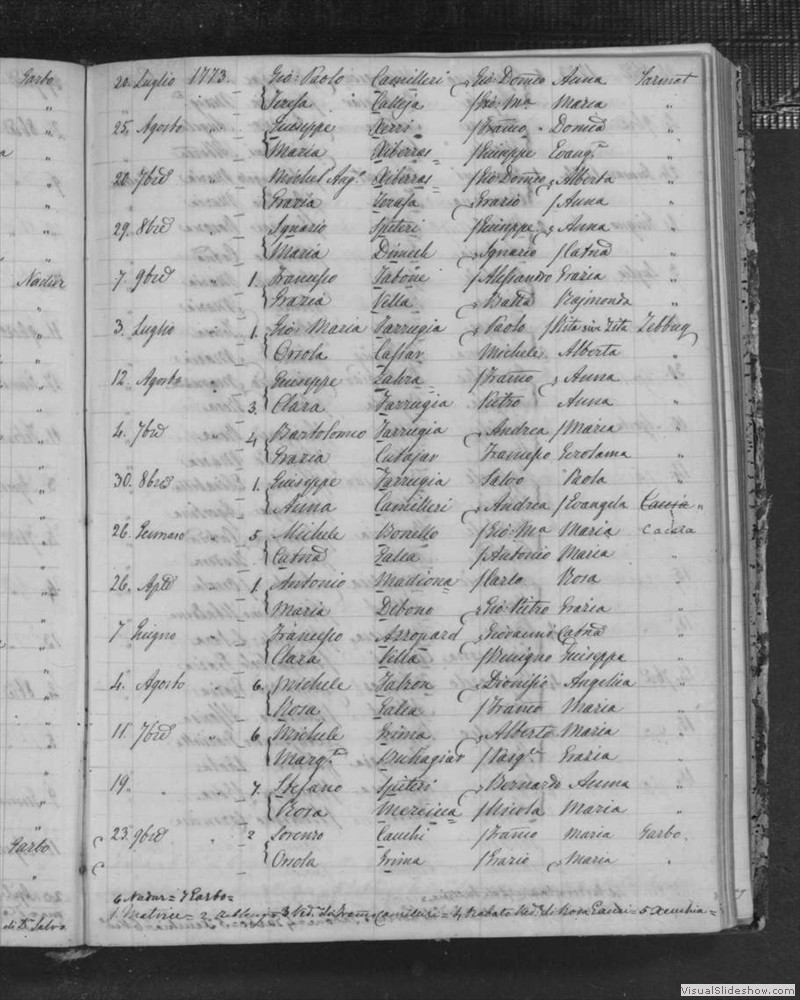 Garbo 20. Luglio 1773. Gio: Paolo Camilleri Gio: Domco Anna Sannat
Teresa Calleja Gio: Ma Maria "
25. Agosto " Giuseppe Xerri Franco Domca "
Maria Xiberras Giuseppe Evanga "
20. 7bre " Michel Ango Xiberras Gio Domco Alberta "
Grazia Grazio Anna "
29. 8bre " Ignazio Spiteri Giuseppe Anna "
Maria Dimech Ignazio Catna "
Nadur 7. 9bre " 1. Francesco Tabone Alessandro Grazia "
Grazia Vella Batta Rajmonda "
3. Luglio " 1. Gio: Maria Farrugia Paolo Rita sive Zita Zebbug
Orsola Cassar Michele Alberta "
12. Agosto " Giuseppe Zahra Franco Anna "
3. Clara Farrugia Pietro Anna "
4. 7bre " 4 Bartolomeo Farrugia Andrea Maria "
Grazia Cutajar Francesco Gerolama "
30. 8bre " 1. Giuseppe Farrugia Salvo Paola "
Anna Camilleri Andrea Evangela "
26. Gennaro " 5 Michele Bonello Gio: Ma Maria Caccia
Catna Galea Antonio Maria "
26. Aple " 1. Antonio Madiona Carlo Rosa "
Maria Debono Gio: Pietro Grazia "
7 Giugno " Francesco Azzopard Giovanni Catna "
Clara Vella Benigno Giuseppa "
4. Agosto " 6. Michele Dionisio Angelica "
Rosa Galea Franco Maria "
11. 7bre " 6 Michele Grima Alberto Maria "
Marga Buhagiar Pasqle Grazia "
19. " " 7. Stefano Spiteri Bernardo Anna "
Rosa Mercieca Nicola Maria "
23. 9bre " 2 Lorenzo Cauchi Franco Maria Garbo.
Garbo Orsola Grima Grazio Maria "
6 Nadur = 7 Garbo =
1. Matrice = 2. = 3 Ved. di Franco Camilleri = 4 Rabato Ved. di Rosa = 5 Xeuchia =
di Dn Salvo
VisualSlideshow.com